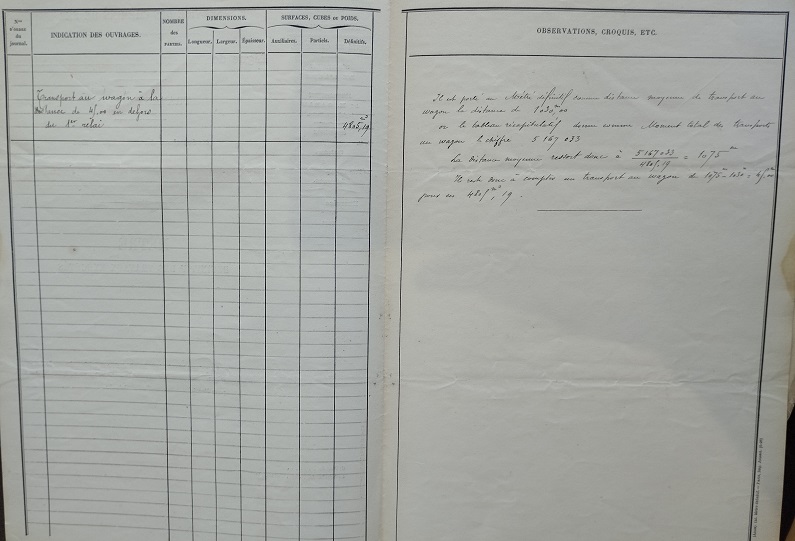 Nos
d'ordre
du
journal.
INDICATION DES OUVRAGES.
NOMBRE
des
PARTIES.
DIMENSIONS.
Longueur.
Largeur.
Épaisseur.
SURFACES, CUBES OU POIDS.
Auxiliaires.
Partiels.
Définitifs.
Transport au wagon à la
distance de 45,00 en dehors
du 1er relai
4805,19 m3
OBSERVATIONS, CROQUIS, ETC.
Il est porté au Métré définitif comme distance moyenne de transport au
wagon la distance de 1030m,00
or le tableau récapitulatif donne comme Moment total des transports
au wagon le chiffre 5 167 033
La distance moyenne ressort donc à 5 167 033 / 4805,19 = 1075m
Il reste donc à compter un transport au wagon de 1075m - 1030m = 45m,00
pour les 4805m3,19.